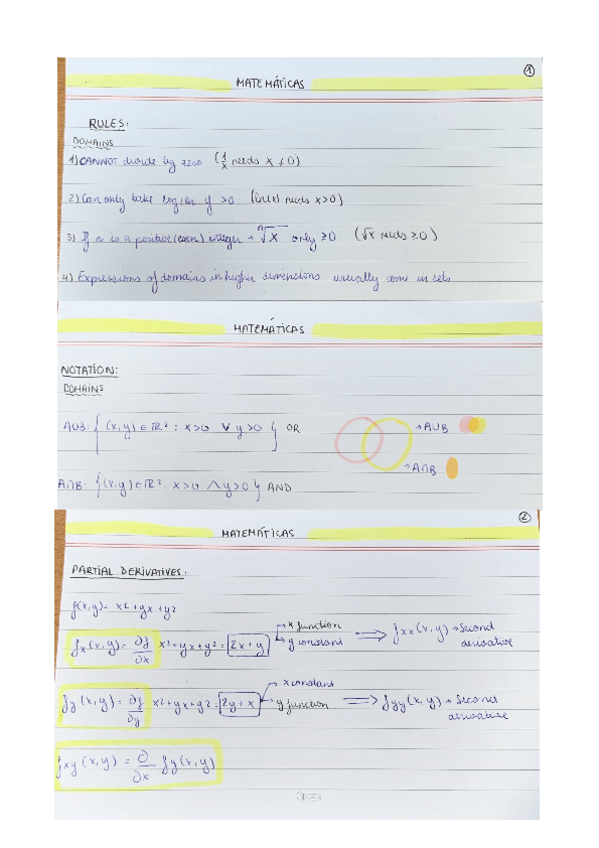 ①
MATEMÁTICAS
RULES:
DOMAINS
1) CANNOT divide by zero (1/x needs x ≠ 0)
2) Can only take log/ln if >0 (ln(x) needs x>0)
3) If n is a positive (even) integer → ⁿ√x only ≥0 (√x needs ≥0)
4) Expressions of domains in higher dimensions usually come in sets
MATEMÁTICAS
NOTATION:
DOMAINS
A∪B: { (x,y) ∈ ℝ² : x>0 ∨ y>0 } OR
→ A∪B
→ A∩B
A∩B: {(x,y) ∈ ℝ² : x>0 ∧ y>0} AND
②
MATEMÁTICAS
PARTIAL DERIVATIVES:
f(x,y) = x²+yx+y²
fx(x,y) = ∂f/∂x x²+yx+y² = 2x+y → x function → y constant ⇒ fxx(x,y) → Second derivative
fy(x,y) = ∂f/∂y x²+yx+y² = 2y+x → x constant → y function ⇒ fyy(x,y) → Second derivative
fxy(x,y) = ∂/∂x fy(x,y)